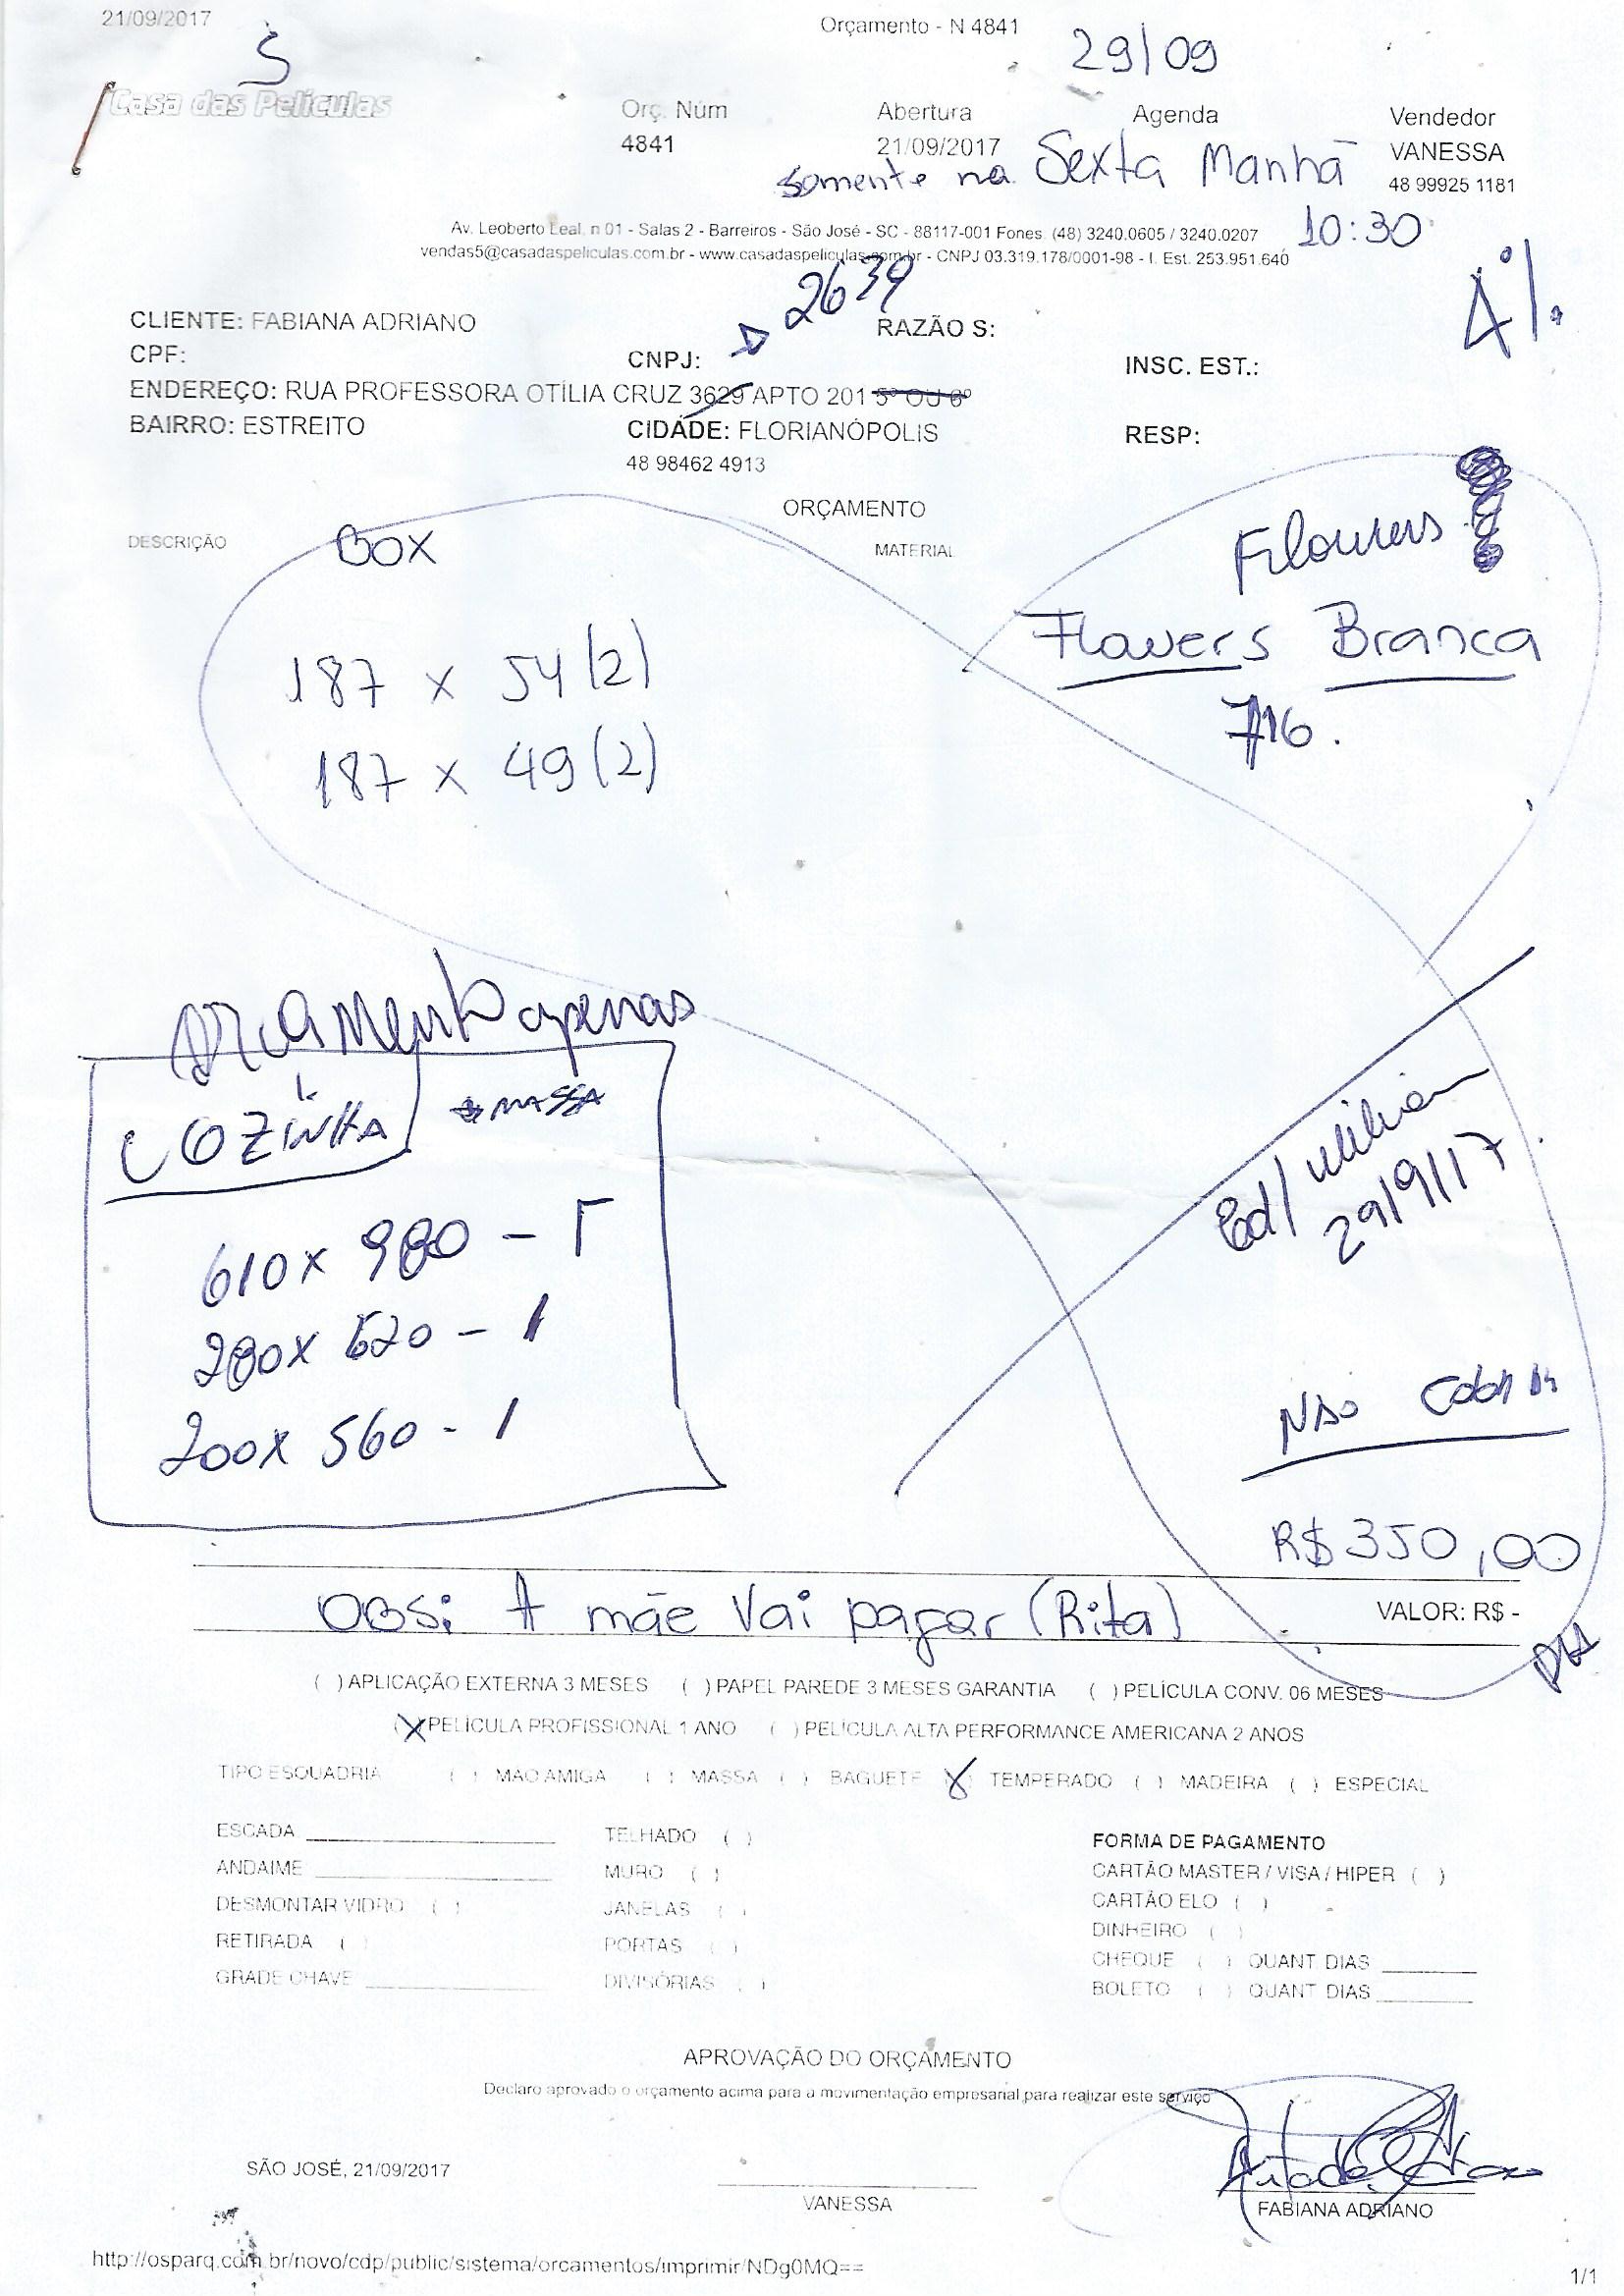 21/09/2017 Orçamento - N 4841
29/09
Casa das Películas
Orç. Núm Abertura Agenda Vendedor
4841 21/09/2017 VANESSA
somente na Sexta Manhã 48 99925 1181
10:30
Av. Leoberto Leal, n 01 - Salas 2 - Barreiros - São José - SC - 88117-001 Fones. (48) 3240.0605 / 3240.0207
vendas5@casadaspeliculas.com.br - www.casadaspeliculas.com.br - CNPJ 03.319.178/0001-98 - I. Est. 253.951.640
2639
4%
CLIENTE: FABIANA ADRIANO RAZÃO S:
CPF: CNPJ: INSC. EST.:
ENDEREÇO: RUA PROFESSORA OTÍLIA CRUZ 3629 APTO 201 5º OU 6º
BAIRRO: ESTREITO CIDADE: FLORIANÓPOLIS RESP:
48 98462 4913
ORÇAMENTO
DESCRIÇÃO BOX MATERIAL
Flowers
Flowers Branca
716.
187 x 54 (2)
187 x 49 (2)
Orçamento apenas
COZINHA MASSA
610 x 980 - 1
280 x 520 - 1
200 x 560 - 1
29/9/17
Não
R$ 350,00
OBS: A mãe vai pagar (Rita) VALOR: R$ -
( ) APLICAÇÃO EXTERNA 3 MESES ( ) PAPEL PAREDE 3 MESES GARANTIA ( ) PELÍCULA CONV. 06 MESES
(X) PELÍCULA PROFISSIONAL 1 ANO ( ) PELÍCULA ALTA PERFORMANCE AMERICANA 2 ANOS
TIPO ESQUADRIA ( ) MAO AMIGA ( ) MASSA ( ) BAGUETE (X) TEMPERADO ( ) MADEIRA ( ) ESPECIAL
ESCADA TELHADO ( ) FORMA DE PAGAMENTO
ANDAIME MURO ( ) CARTÃO MASTER / VISA / HIPER ( )
DESMONTAR VIDRO ( ) JANELAS ( ) CARTÃO ELO ( )
RETIRADA ( ) PORTAS ( ) DINHEIRO ( )
GRADE CHAVE DIVISÓRIAS ( ) CHEQUE ( ) QUANT DIAS
BOLETO ( ) QUANT DIAS
APROVAÇÃO DO ORÇAMENTO
Declaro aprovado o orçamento acima para a movimentação empresarial para realizar este serviço
SÃO JOSÉ, 21/09/2017
VANESSA FABIANA ADRIANO
http://osparq.com.br/novo/cdp/public/sistema/orcamentos/imprimir/NDg0MQ== 1/1